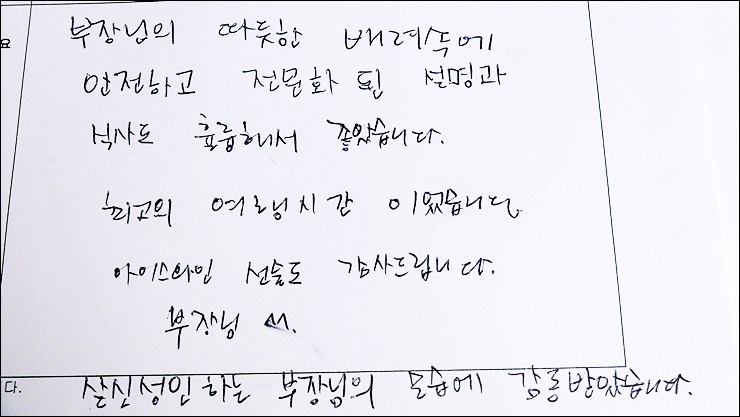 요
부장님의 따듯한 배려속에
안전하고 전문화 된 설명과
식사도 훌륭해서 좋았습니다.
최고의 여행시간 이었습니다
아이스와인 선물도 감사드립니다.
부장님
다. 살신성인하는 부장님의 모습에 감동받았습니다.